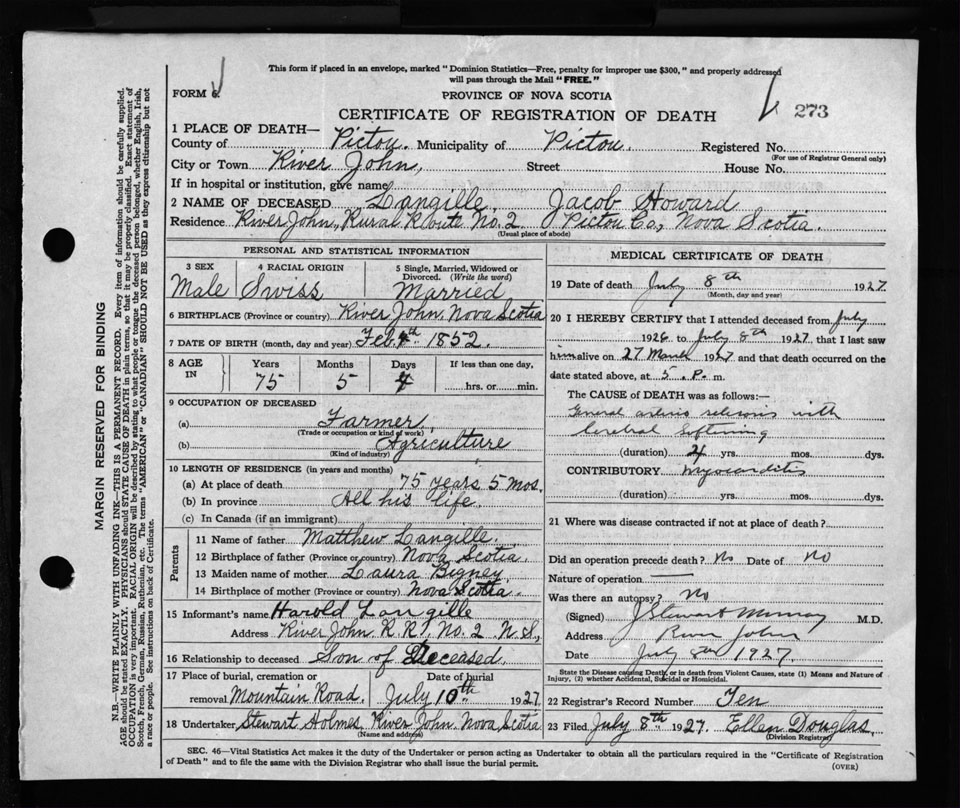 This form if placed in an envelope, marked " Dominion Statistics—Free, penalty for improper use $300," and properly addressed
will pass through the Mail "FREE."
FORM 6.
PROVINCE OF NOVA SCOTIA
273
CERTIFICATE OF REGISTRATION OF DEATH
1 PLACE OF DEATH—
County of Pictou. Municipality of Pictou. Registered No.
(For use of Registrar General only)
City or Town River John, Street House No.
If in hospital or institution, give name
2 NAME OF DECEASED Langille Jacob Howard
Residence River John, Rural Route No. 2 Pictou Co, Nova Scotia.
(Usual place of abode)
PERSONAL AND STATISTICAL INFORMATION
3 SEX Male
4 RACIAL ORIGIN Swiss
5 Single, Married, Widowed or
Divorced. (Write the word)
Married
6 BIRTHPLACE (Province or country) River John, Nova Scotia
7 DATE OF BIRTH (month, day and year) Feb. 4th 1852.
8 AGE IN
Years 75
Months 5
Days 4
If less than one day,
hrs. or min.
9 OCCUPATION OF DECEASED
(a) Farmer,
(Trade or occupation or kind of work)
(b) Agriculture
(Kind of industry)
10 LENGTH OF RESIDENCE (in years and months)
(a) At place of death 75 years 5 mos.
(b) In province All his life.
(c) In Canada (if an immigrant)
Parents
11 Name of father Matthew Langille.
12 Birthplace of father (Province or country) Nova Scotia.
13 Maiden name of mother Laura Bigney
14 Birthplace of mother (Province or country) Nova Scotia.
15 Informant's name Harold Langille
Address River John R. R. No. 2 N. S,
16 Relationship to deceased Son of Deceased.
17 Place of burial, cremation or
removal Mountain Road.
Date of burial
July 10th 1927.
18 Undertaker Stewart Holmes, River John, Nova Scotia
(Name and address)
MEDICAL CERTIFICATE OF DEATH
19 Date of death July 8th 1927
(Month, day and year)
20 I HEREBY CERTIFY that I attended deceased from July
1926 to July 8th 1927, that I last saw
him alive on 27 March 1927 and that death occurred on
date stated above, at 5. P. m.
The CAUSE of DEATH was as follows:—
General arterio sclerosis with
Cerebral Softening
(duration) yrs. mos. dys.
CONTRIBUTORY Myocarditis
(duration) yrs. mos. dys.
21 Where was disease contracted if not at place of death?
Did an operation precede death? No Date of No
Nature of operation —
Was there an autopsy? No
(Signed) J Stewart Murray M.D.
Address River John
Date July 8th 1927.
State the Disease causing Death, or in death from Violent Causes, state (1) Means and Nature of
Injury, (2) whether Accidental, Suicidal or Homicidal.
22 Registrar's Record Number Ten
23 Filed July 8th 1927. Ellan Douglas,
(Division Registrar)
SEC. 46—Vital Statistics Act makes it the duty of the Undertaker or person acting as Undertaker to obtain all the particulars required in the "Certificate of Registration
of Death" and to file the same with the Division Registrar who shall issue the burial permit.
(OVER)
MARGIN RESERVED FOR BINDING
N.B.—WRITE PLAINLY WITH UNFADING INK—THIS IS A PERMANENT RECORD. Every item of information should be carefully supplied.
AGE should be stated EXACTLY. PHYSICIANS should STATE CAUSE OF DEATH in plain terms, so that it may be properly classified. Exact statement of
OCCUPATION is very important. RACIAL ORIGIN will be described by stating to what people or tongue the deceased person belonged, whether English, Irish,
Scotch, French, German, Russian, Ruthenian, etc. The terms "AMERICAN" or "CANADIAN" SHOULD NOT BE USED as they express citizenship but not
a race or people. See instructions on back of Certificate.